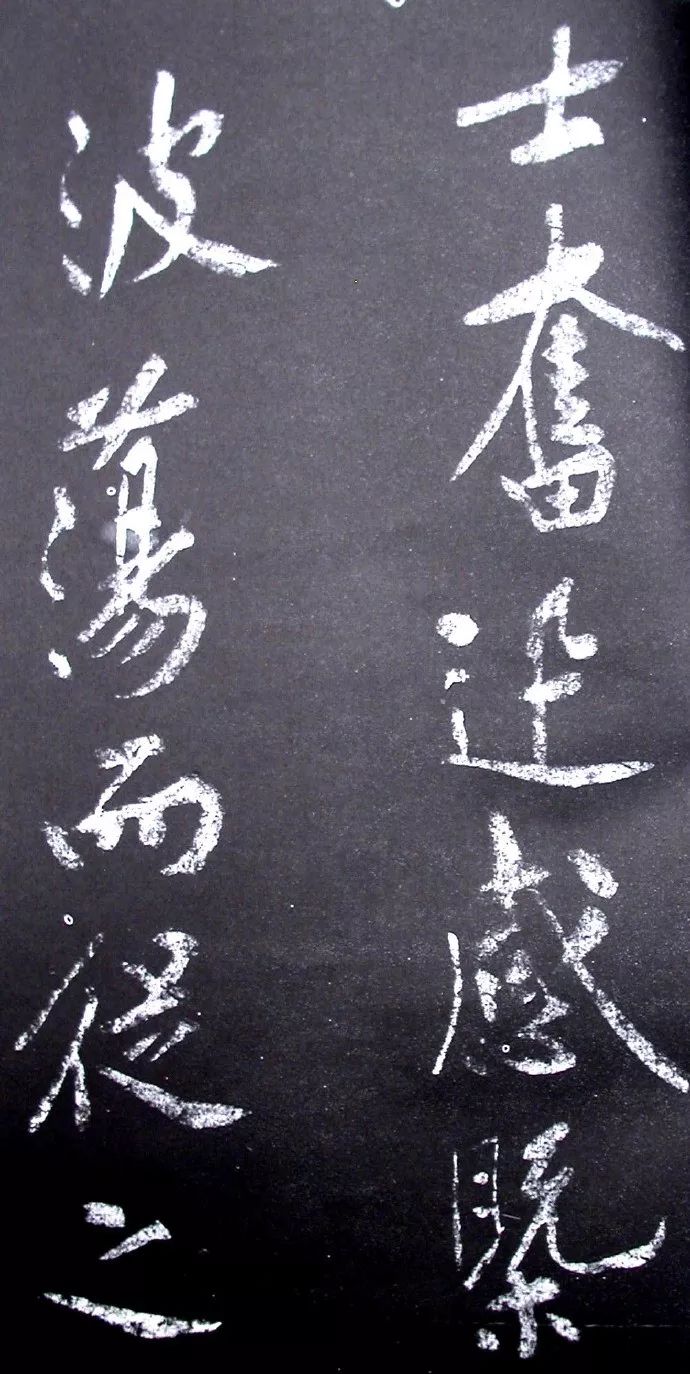 士奮迅感槩
波蕩而從之